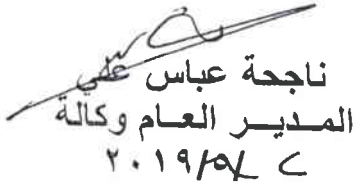 ناجحة عباس علي
المديـر العـام وكالة
٢٠١٩/٥/ ٢